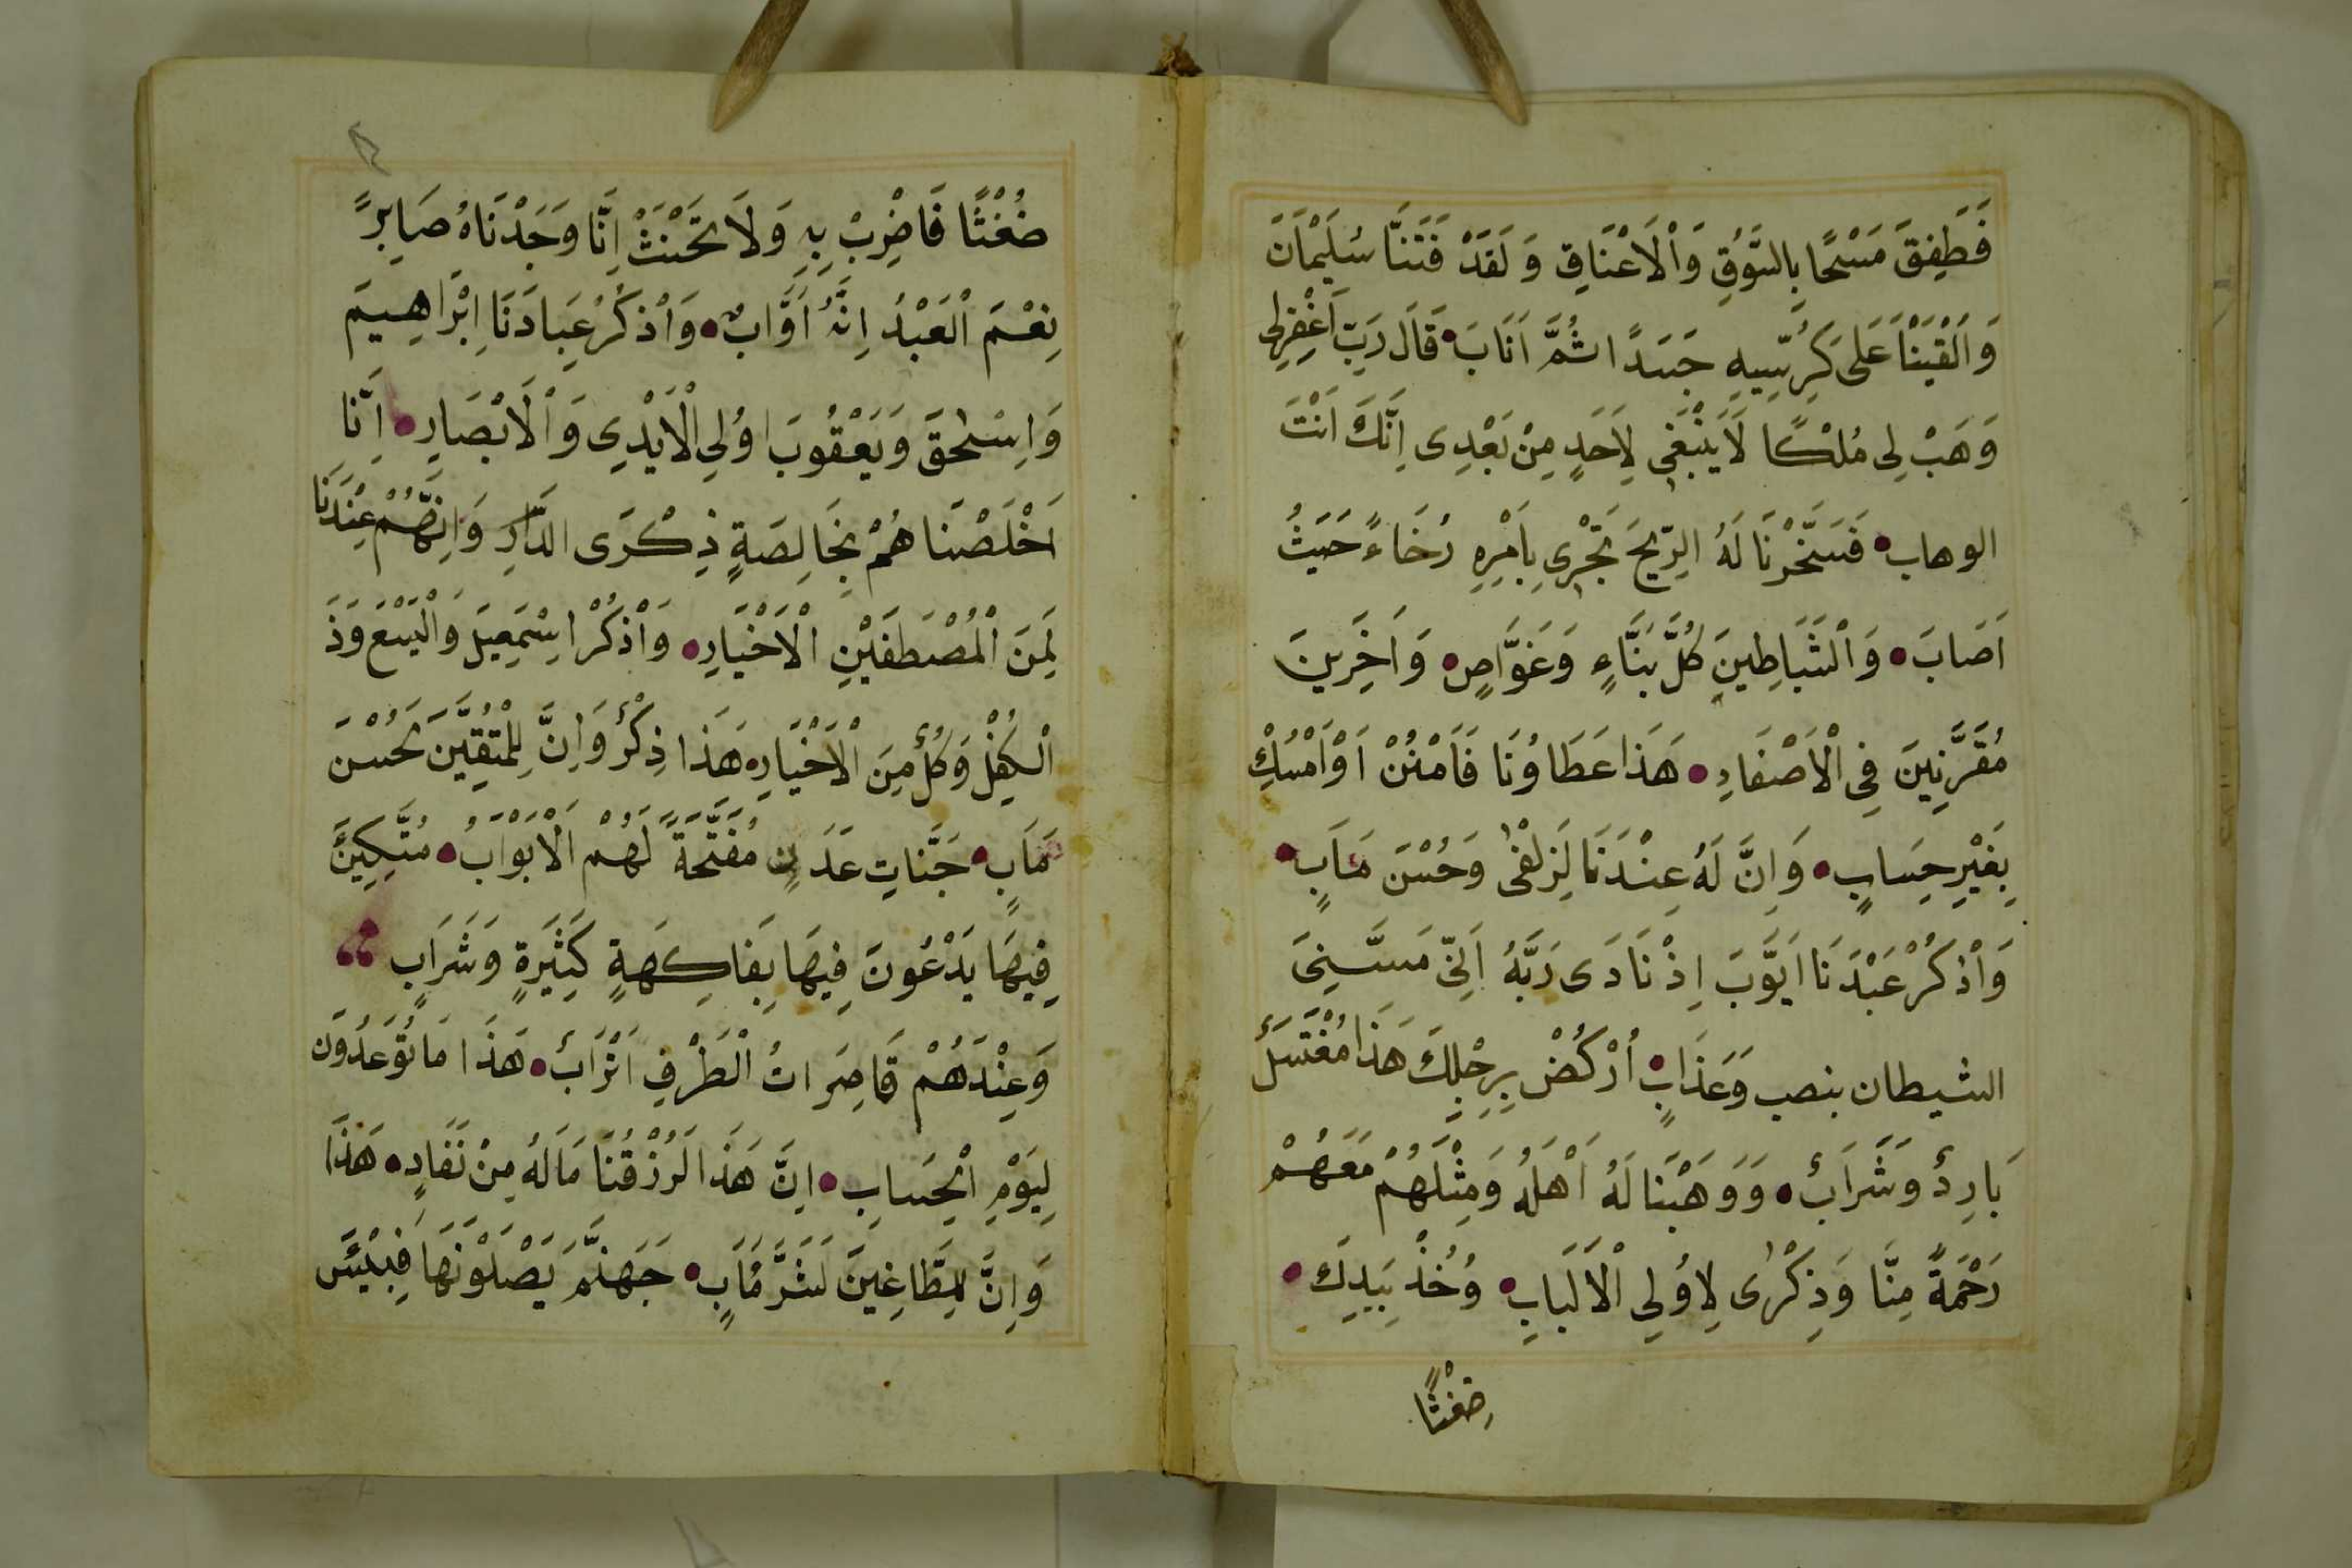 فَطَفِقَ مَسْحًا بِالسُّوقِ وَالْاَعْنَاقِ وَلَقَدْ فَتَنَّا سُلَيْمَانَ
وَاَلْقَيْنَا عَلَى كُرْسِيِّهِ جَسَدًا ثُمَّ اَنَابَ قَالَ رَبِّ اغْفِرْلِى
وَهَبْ لِى مُلْكًا لَا يَنْبَغِى لِاَحَدٍ مِنْ بَعْدِى اِنَّكَ اَنْتَ
الوهاب فَسَخَّرْنَا لَهُ الرِّيحَ تَجْرِى بِاَمْرِهِ رُخَاءً حَيْثُ
اَصَابَ وَالشَّيَاطِينَ كُلَّ بَنَّاءٍ وَغَوَّاصٍ وَاَخَرِينَ
مُقَرَّنِينَ فِى الْاَصْفَادِ هَذَا عَطَاوُنَا فَامْنُنْ اَوْ اَمْسِكْ
بِغَيْرِ حِسَابٍ وَاِنَّ لَهُ عِنْدَنَا لَزُلْفٰى وَحُسْنَ مَاَبٍ
وَاذْكُرْ عَبْدَنَا اَيُّوَبَ اِذْ نَادَى رَبَّهُ اَنِّى مَسَّنِىَ
الشيطان بنصب وَعَذَابٍ اُرْكُضْ بِرِجْلِكَ هَذَا مُغْتَسَلٌ
بَارِدٌ وَشَرَابٌ وَوَهَبْنَا لَهُ اَهْلَهُ وَمِثْلَهُمْ مَعَهُمْ
رَحْمَةً مِنَّا وَذِكْرٰى لِاوُلِى الْاَلْبَابِ وَخُذْ بِيَدِكَ
ضِغْثًا
ضُغْثًا فَاضْرِبْ بِهِ وَلَا تَحْنَثْ اِنَّا وَجَدْنَاهُ صَابِرً
نِعْمَ الْعَبْدُ اِنَّهُ اَوَّابٌ وَاذْكُرْ عِبَادَنَا اِبْرَاهِيمَ
وَاِسْحٰقَ وَيَعْقُوبَ اوُلِى الْاَيْدِى وَالْاَبْصَارِ اِنَّا
اَخْلَصْنَا هُمْ بِخَالِصَةٍ ذِكْرَى الدَّارِ وَاِنَّهُمْ عِنْدَنَا
لَمِنَ الْمُصْطَفَيْنِ الْاَخْيَارِ وَاذْكُرْ اِسْمَعِيلَ وَالْيَسَعَ وَذَ
الْكِفْلِ وَكُلٌّ مِنَ الْاَخْيَارِ هَذَا ذِكْرٌ وَاِنَّ لِلْمُتَّقِينَ لَحُسْنَ
مَاَبٍ جَنَّاتِ عَدَنٍ مُفَتَّحَةً لَهُمْ الْاَبْوَابُ مُتَّكِئِينَ
فِيهَا يَدْعُونَ فِيهَا بِفَاكِهَةٍ كَثِيَرةٍ وَشَرَابٍ
وَعِنْدَهُمْ قَاصِرَاتُ الْطَرْفِ اَتْرَابٌ هَذَا مَا تُوَعَدُونَ
لِيَوْمِ الْحِسَابِ اِنَّ هَذَا لَرْزُقُنَا مَا لَهُ مِنْ نَفَادٍ هَذَا
وَاِنَّ لِلطَّاغِينَ لَشَرَّ مَاَبٍ جَهَنَّمَ يَصْلَوْنَهَا فَبِئْسَ